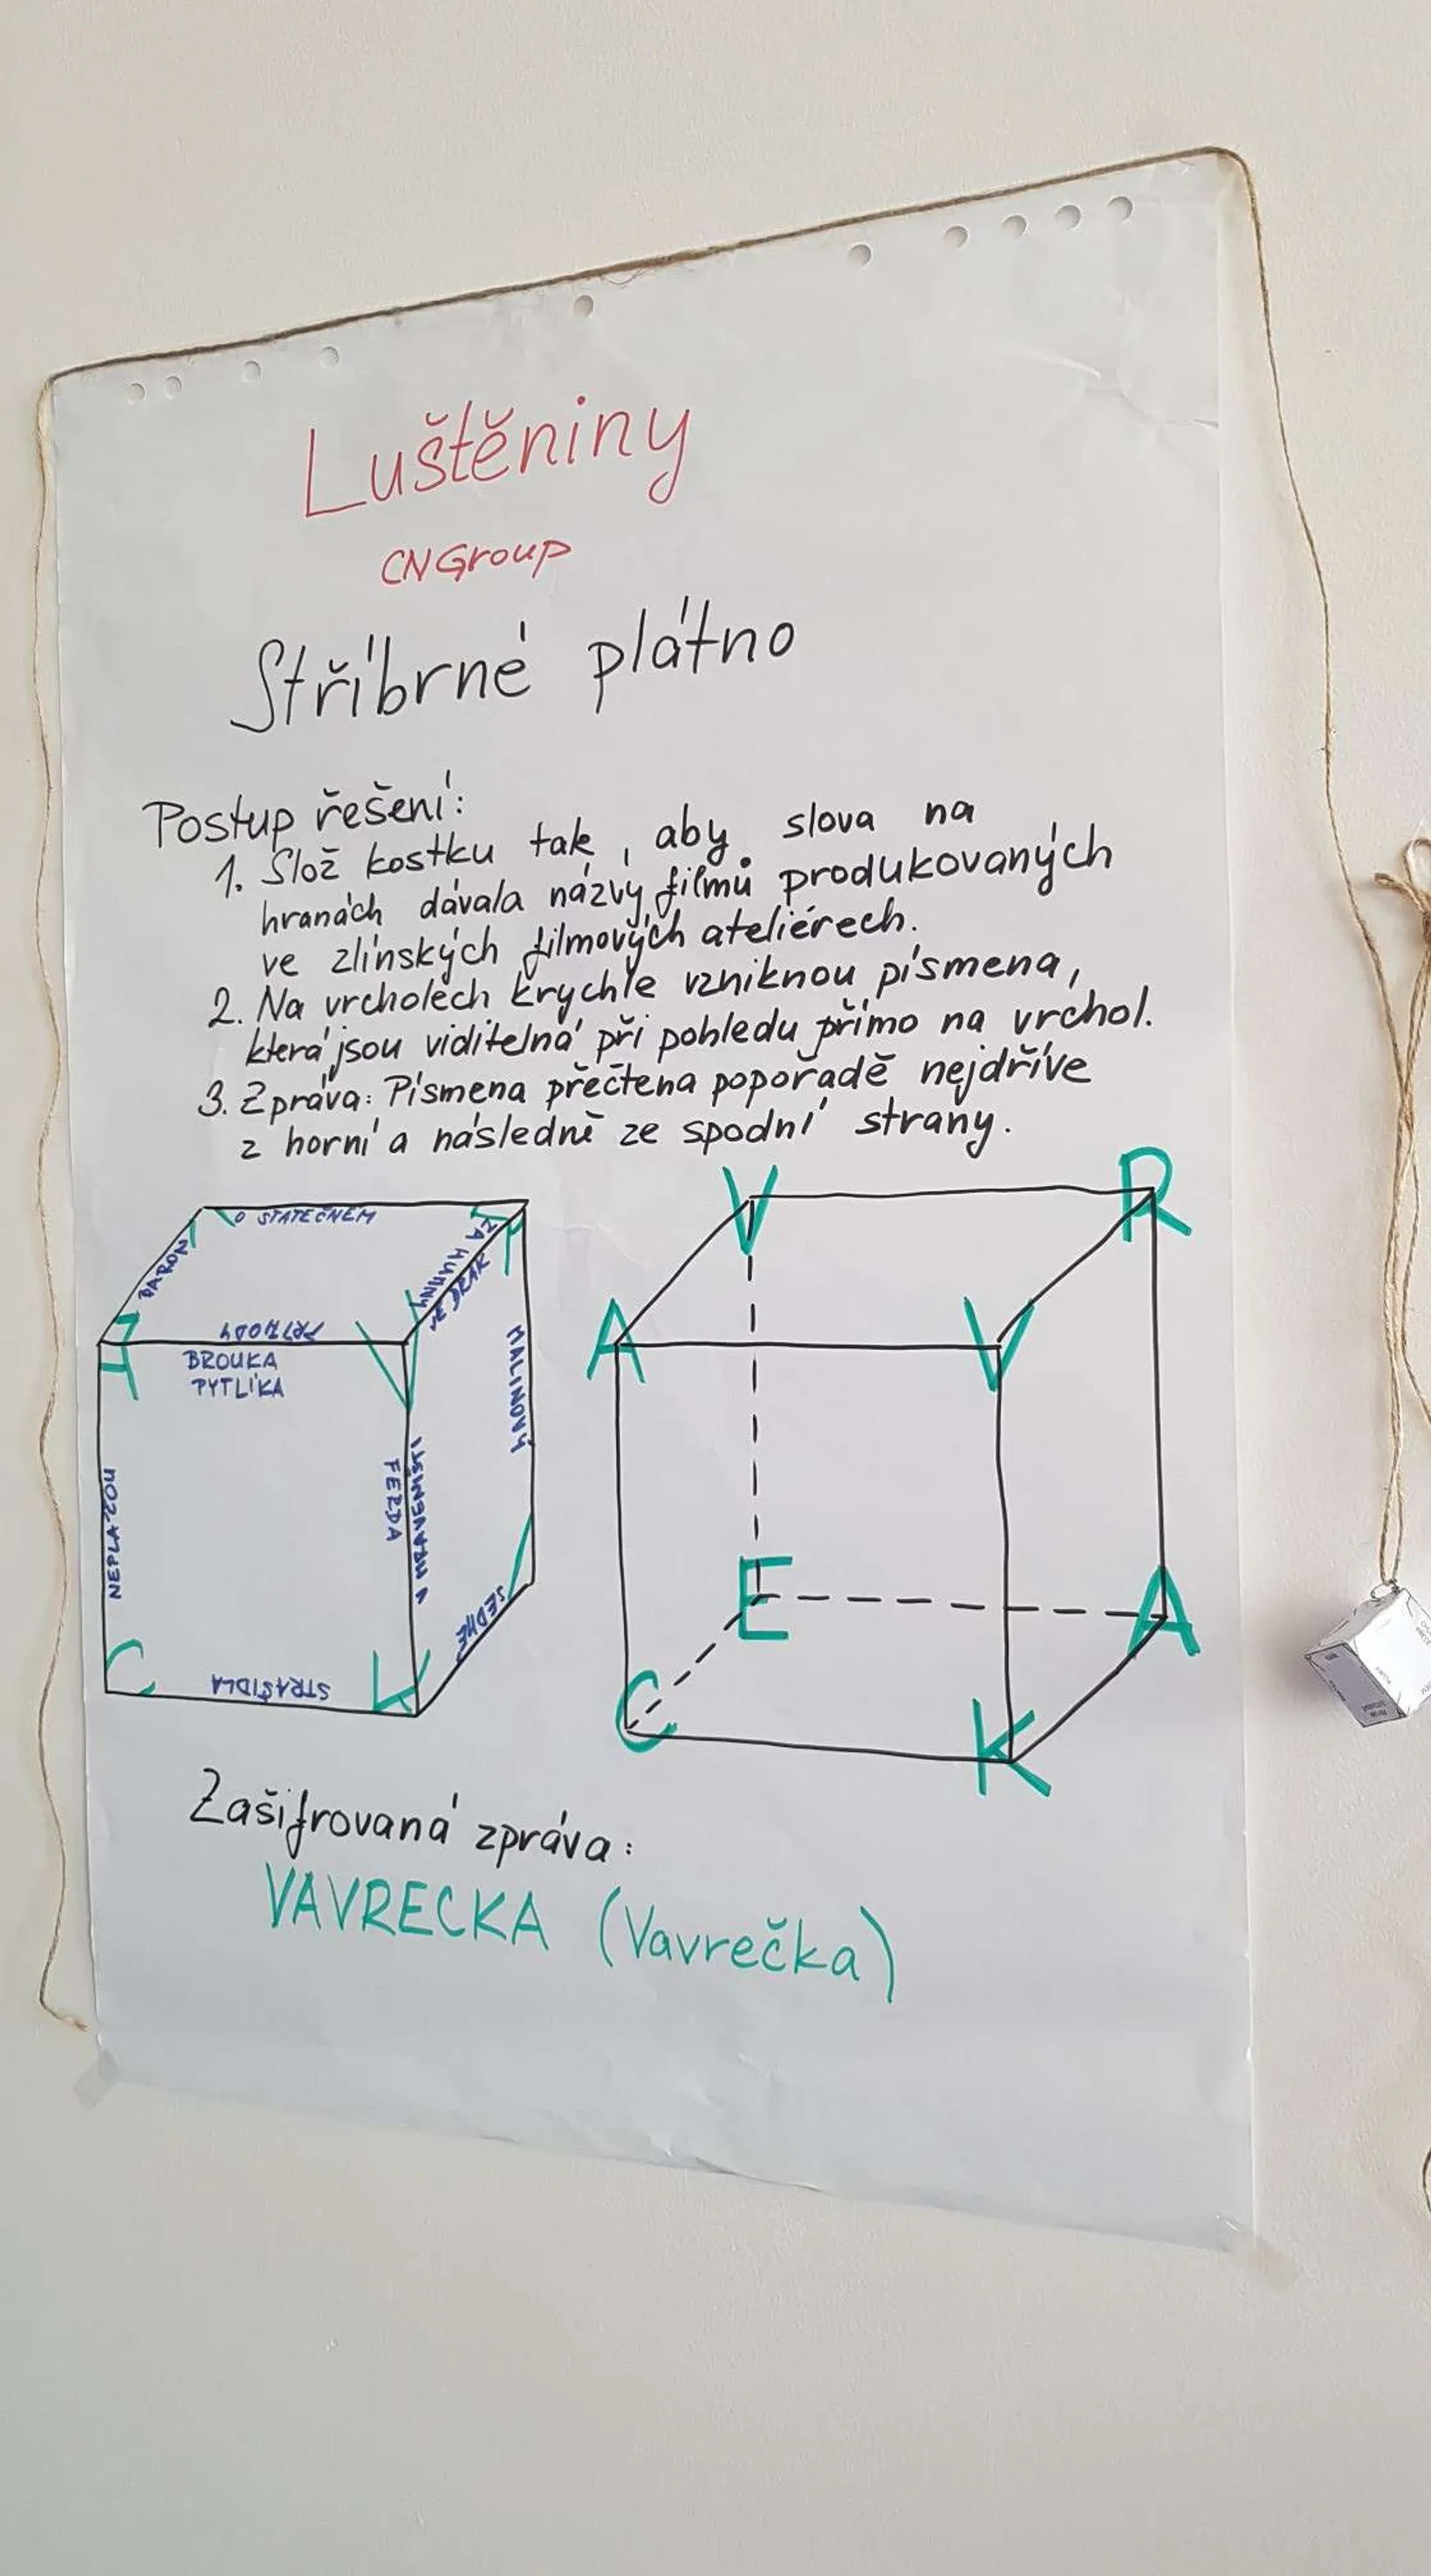 Luštěniny
CN Group
Stříbrné plátno
Postup řešení:
1. Slož kostku tak, aby slova na
hranách dávala názvy filmů produkovaných
ve zlínských filmových ateliérech.
2. Na vrcholech krychle vzniknou písmena,
která jsou viditelná při pohledu přímo na vrchol.
3. Zpráva: Písmena přečtena popořadě nejdříve
z horní a následně ze spodní strany.
O STATEČNÉM
BARON
ZA HUMNY
JE DRAK
PŘÍHODY
BROUKA
PYTLÍKA
MALINOVÝ
NEPLAŽOU
FERDA
V MRAVENIŠTI
SEDMÉ
STRAŠIDLA
C
K
V
R
A
V
E
A
C
K
Zašifrovaná zpráva:
VAVRECKA (Vavrečka)